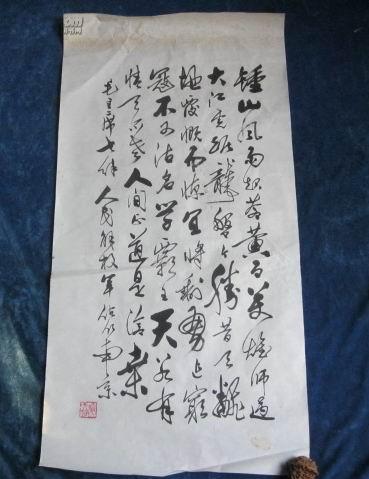 鍾山風雨起蒼黄百万雄師過
大江虎踞龍盤今勝昔天翻
地覆慨而慷宜将剩勇追窮
寇不可沽名学霸王天若有
情天亦老人间正道是滄桑
毛主席七律人民解放軍佔领南京